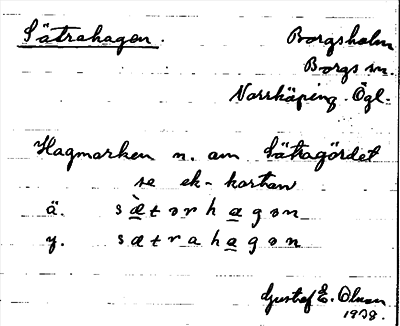 Sätrahagen.
Borgsholm
Borgs sn.
Norrköping. Ögl.
Hagmarken n. om Sätragärdet
se ek-kartan
ä. sæ̀tərhagən
y. sætrahagən
Gustaf E. Olsson
1928.